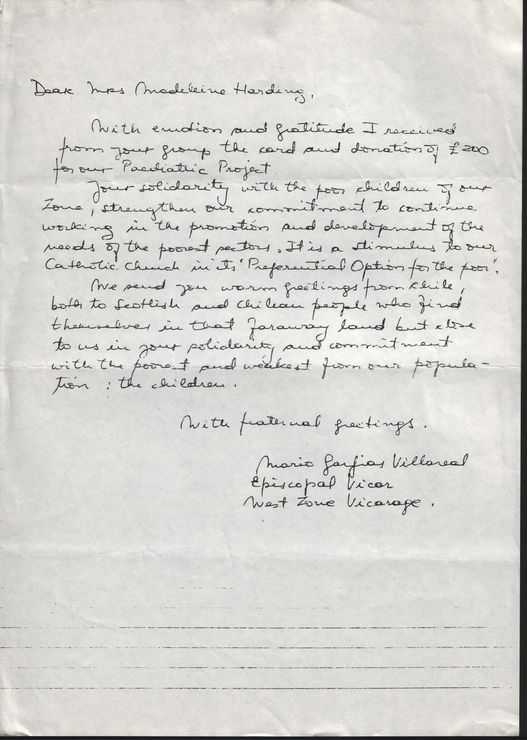 Dear Mrs Madeleine Harding,
With emotion and gratitude I received
from your group the card and donation of £200
for our Paediatric Project
Your solidarity with the poor children of our
Zone, strengthen our commitment to continue
working in the promotion and development of the
needs of the poorest sectors. It is a stimulus to our
Catholic Church in its 'Preferential Option for the poor'.
We send you warm greetings from Chile,
both to Scottish and Chilean people who find
themselves in that faraway land but close
to us in your solidarity and commitment
with the poorest and weakest from our popula-
tion : the children.
With fraternal greetings.
Mario Garfias Villareal
Episcopal Vicar
West Zone Vicarage.